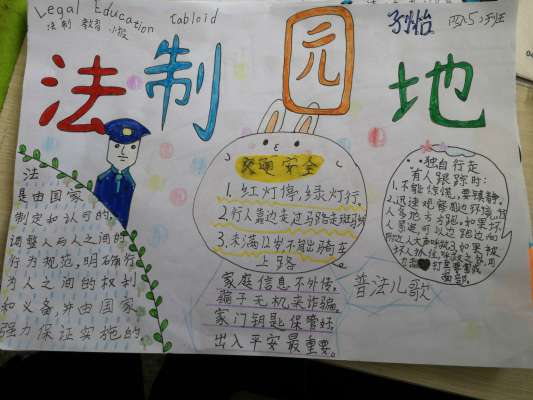 Legal Education tabloid
法制 教育 小报
四5班
法制园地
法
是由国家
制定和认可的,
调整人与人之间的
行为规范,明确行
为人之间的权利
和义务,并由国家
强力保证实施的
交通安全
1.红灯停,绿灯行,
2.行人靠边走过马路走斑马线
3.未满12岁不能出骑车
上路
家庭信息不外传,
骗子无机来诈骗。
家门钥匙保管好
出入平安最重要。
普法儿歌
独自行走
有人跟踪时:
1.不能惊慌,要镇静。
2.迅速观察周边环境,